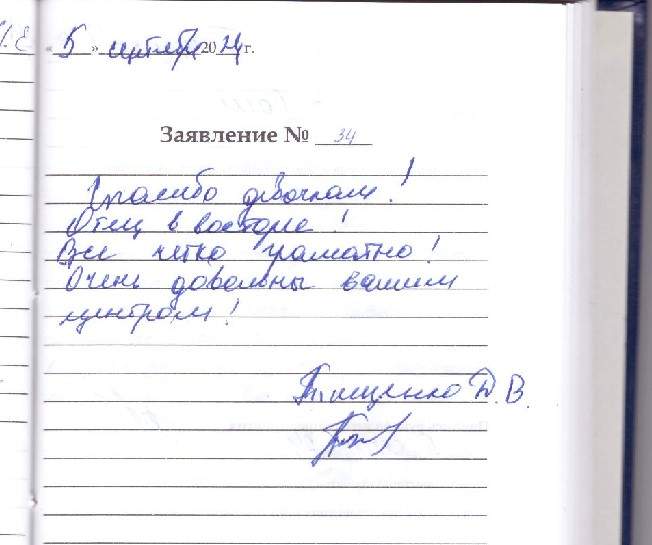 «5» сентября 2024 г.
Заявление № 34
Спасибо девочкам!
Отец в восторге!
Все четко грамотно!
Очень довольны вашим
центром!
Тищенко Д.В.